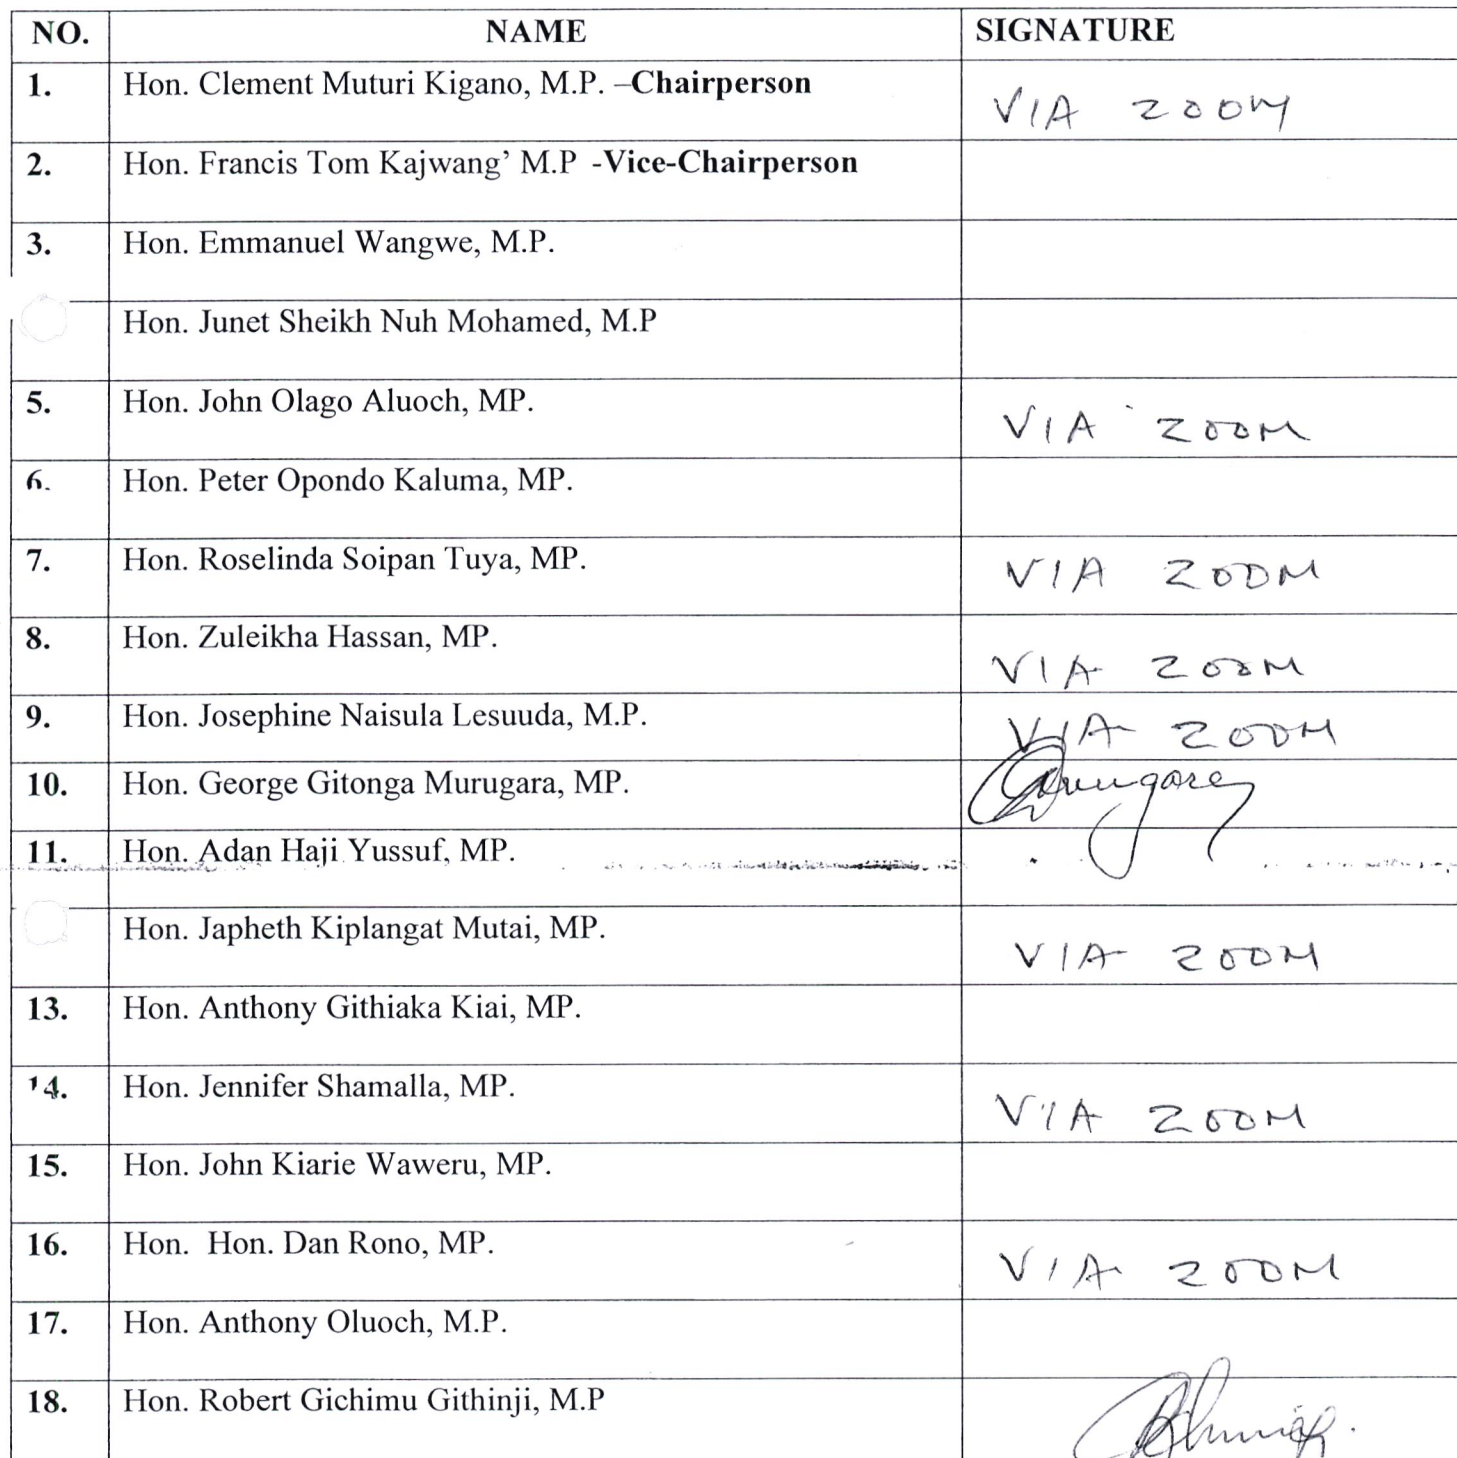 NO. NAME SIGNATURE
1. Hon. Clement Muturi Kigano, M.P. –Chairperson VIA ZOOM
2. Hon. Francis Tom Kajwang’ M.P -Vice-Chairperson
3. Hon. Emmanuel Wangwe, M.P.
Hon. Junet Sheikh Nuh Mohamed, M.P
5. Hon. John Olago Aluoch, MP. VIA ZOOM
6. Hon. Peter Opondo Kaluma, MP.
7. Hon. Roselinda Soipan Tuya, MP. VIA ZOOM
8. Hon. Zuleikha Hassan, MP. VIA ZOOM
9. Hon. Josephine Naisula Lesuuda, M.P. VIA ZOOM
10. Hon. George Gitonga Murugara, MP.
11. Hon. Adan Haji Yussuf, MP.
Hon. Japheth Kiplangat Mutai, MP. VIA ZOOM
13. Hon. Anthony Githiaka Kiai, MP.
14. Hon. Jennifer Shamalla, MP. VIA ZOOM
15. Hon. John Kiarie Waweru, MP.
16. Hon. Hon. Dan Rono, MP. VIA ZOOM
17. Hon. Anthony Oluoch, M.P.
18. Hon. Robert Gichimu Githinji, M.P